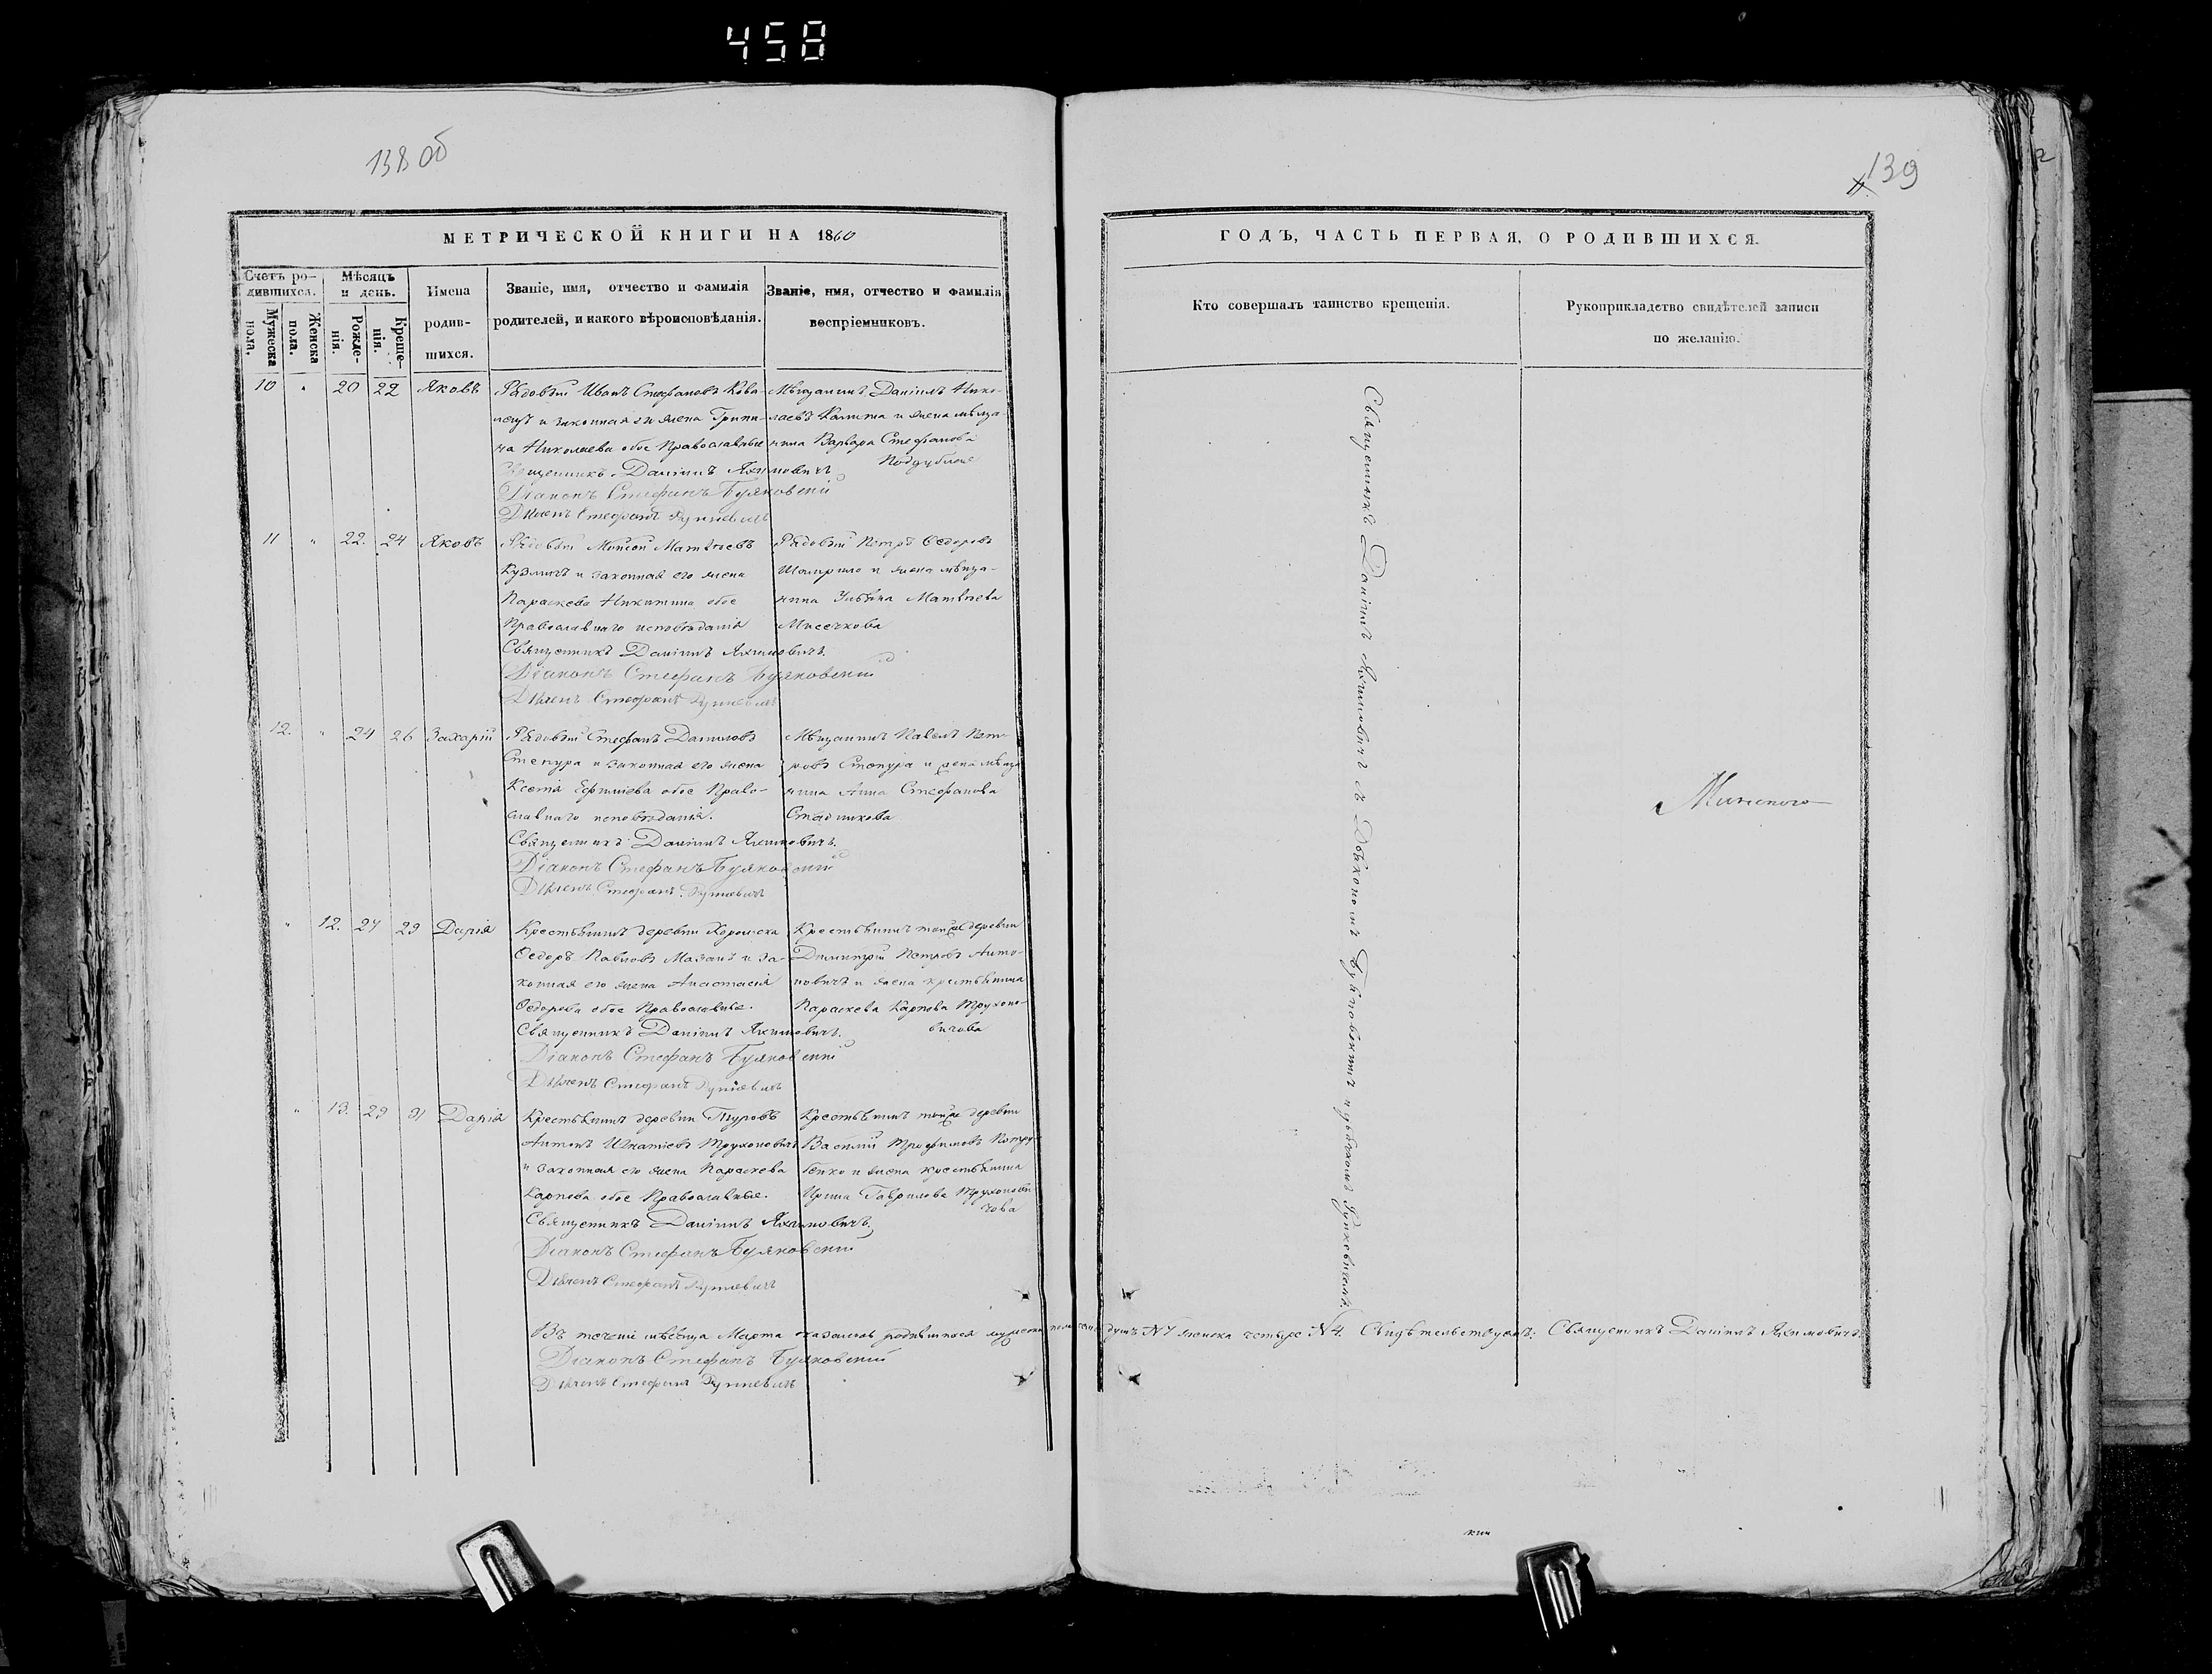 458
138 об
139
МЕТРИЧЕСКОЙ КНИГИ НА 1860
ГОДЪ, ЧАСТЬ ПЕРВАЯ, О РОДИВШИХСЯ.
Счетъ ро-
дившихся.
Мужеска
пола.
Женска
пола.
Мѣсяцъ
и день.
Рожде-
нія.
Креще-
нія.
Имена
родив-
шихся.
Званіе, имя, отчество и фамилія
родителей, и какого вѣроисповѣданія.
Званіе, имя, отчество и фамилія
воспріемниковъ.
Кто совершалъ таинство крещенія.
Рукоприкладство свидѣтелей записи
по желанію.
10 " 20 22 Яковъ
Рядовый Иванъ Стефановъ Кова-
лецъ и законная его жена Грипи-
на Николаева обое Православные
Священникъ Даніилъ Якимовичъ
Діаконъ Стефанъ Буяковскій
Дьячекъ Стефанъ
Мѣщанинъ Даніилъ Нико-
лаевъ Калита и жена мѣща-
нина Варвара Стефанова
11 " 22 24 Яковъ
Рядовый Мойсей Матвѣевъ
Кузмичъ и законная его жена
Параскева Никитина обое
Православнаго исповѣданія
Священникъ Даніилъ Якимовичъ.
Діаконъ Стефанъ Буяковскій
Дьячекъ Стефанъ
Рядовый Петръ Ѳедоровъ
и жена мѣща-
нина Ульяна Матвѣева
12. " 24 26 Захарій
Рядовый Стефанъ Даниловъ
Степура и законная его жена
Ксенія Ефимiева обое Право-
славнаго исповѣданія.
Священникъ Даніилъ Якимовичъ.
Діаконъ Стефанъ Буяковскій
Дьячекъ Стефанъ
Мѣщанинъ Павелъ Пет-
ровъ Степура и жена мѣща
нина Анна Стефанова
Стадникова
" 12. 27 29 Дарія
Крестьянинъ деревни Хоромска
Ѳедоръ Павловъ Мазанъ и за-
конная его жена Анастасія
Ѳедорова обое Православные.
Священникъ Даніилъ Якимовичъ.
Діаконъ Стефанъ Буяковскій
Дьячекъ Стефанъ
Крестьянинъ тойже деревни
Димитрій Петровъ Анто-
новичъ и жена крестьянина
Параскева Карпова Трухоно-
вичова
" 13. 29 31 Дарія
Крестьянинъ деревни Туровъ
Антонъ Игнатіевъ Трухоновичъ
и законная его жена Параскева
Карпова обое Православные.
Священникъ Даніилъ Якимовичъ.
Діаконъ Стефанъ Буяковскій
Дьячекъ Стефанъ
Крестьянинъ тойже деревни
Василій Трофимовъ Петру-
бенко и жена крестьянина
Ирина Гаврилова Трухонови
чова
Священникъ Даніилъ Якимовичъ съ Діакономъ Буяковскимъ и дьячкомъ
Минского
Въ теченіи мѣсяца Марта оказалось родившихся мужеска пола душъ женска четыре №4. Свидѣтельствуемъ: Священникъ Даніилъ Якимовичъ
Діаконъ Стефанъ Буяковскій
Дьячекъ Стефанъ